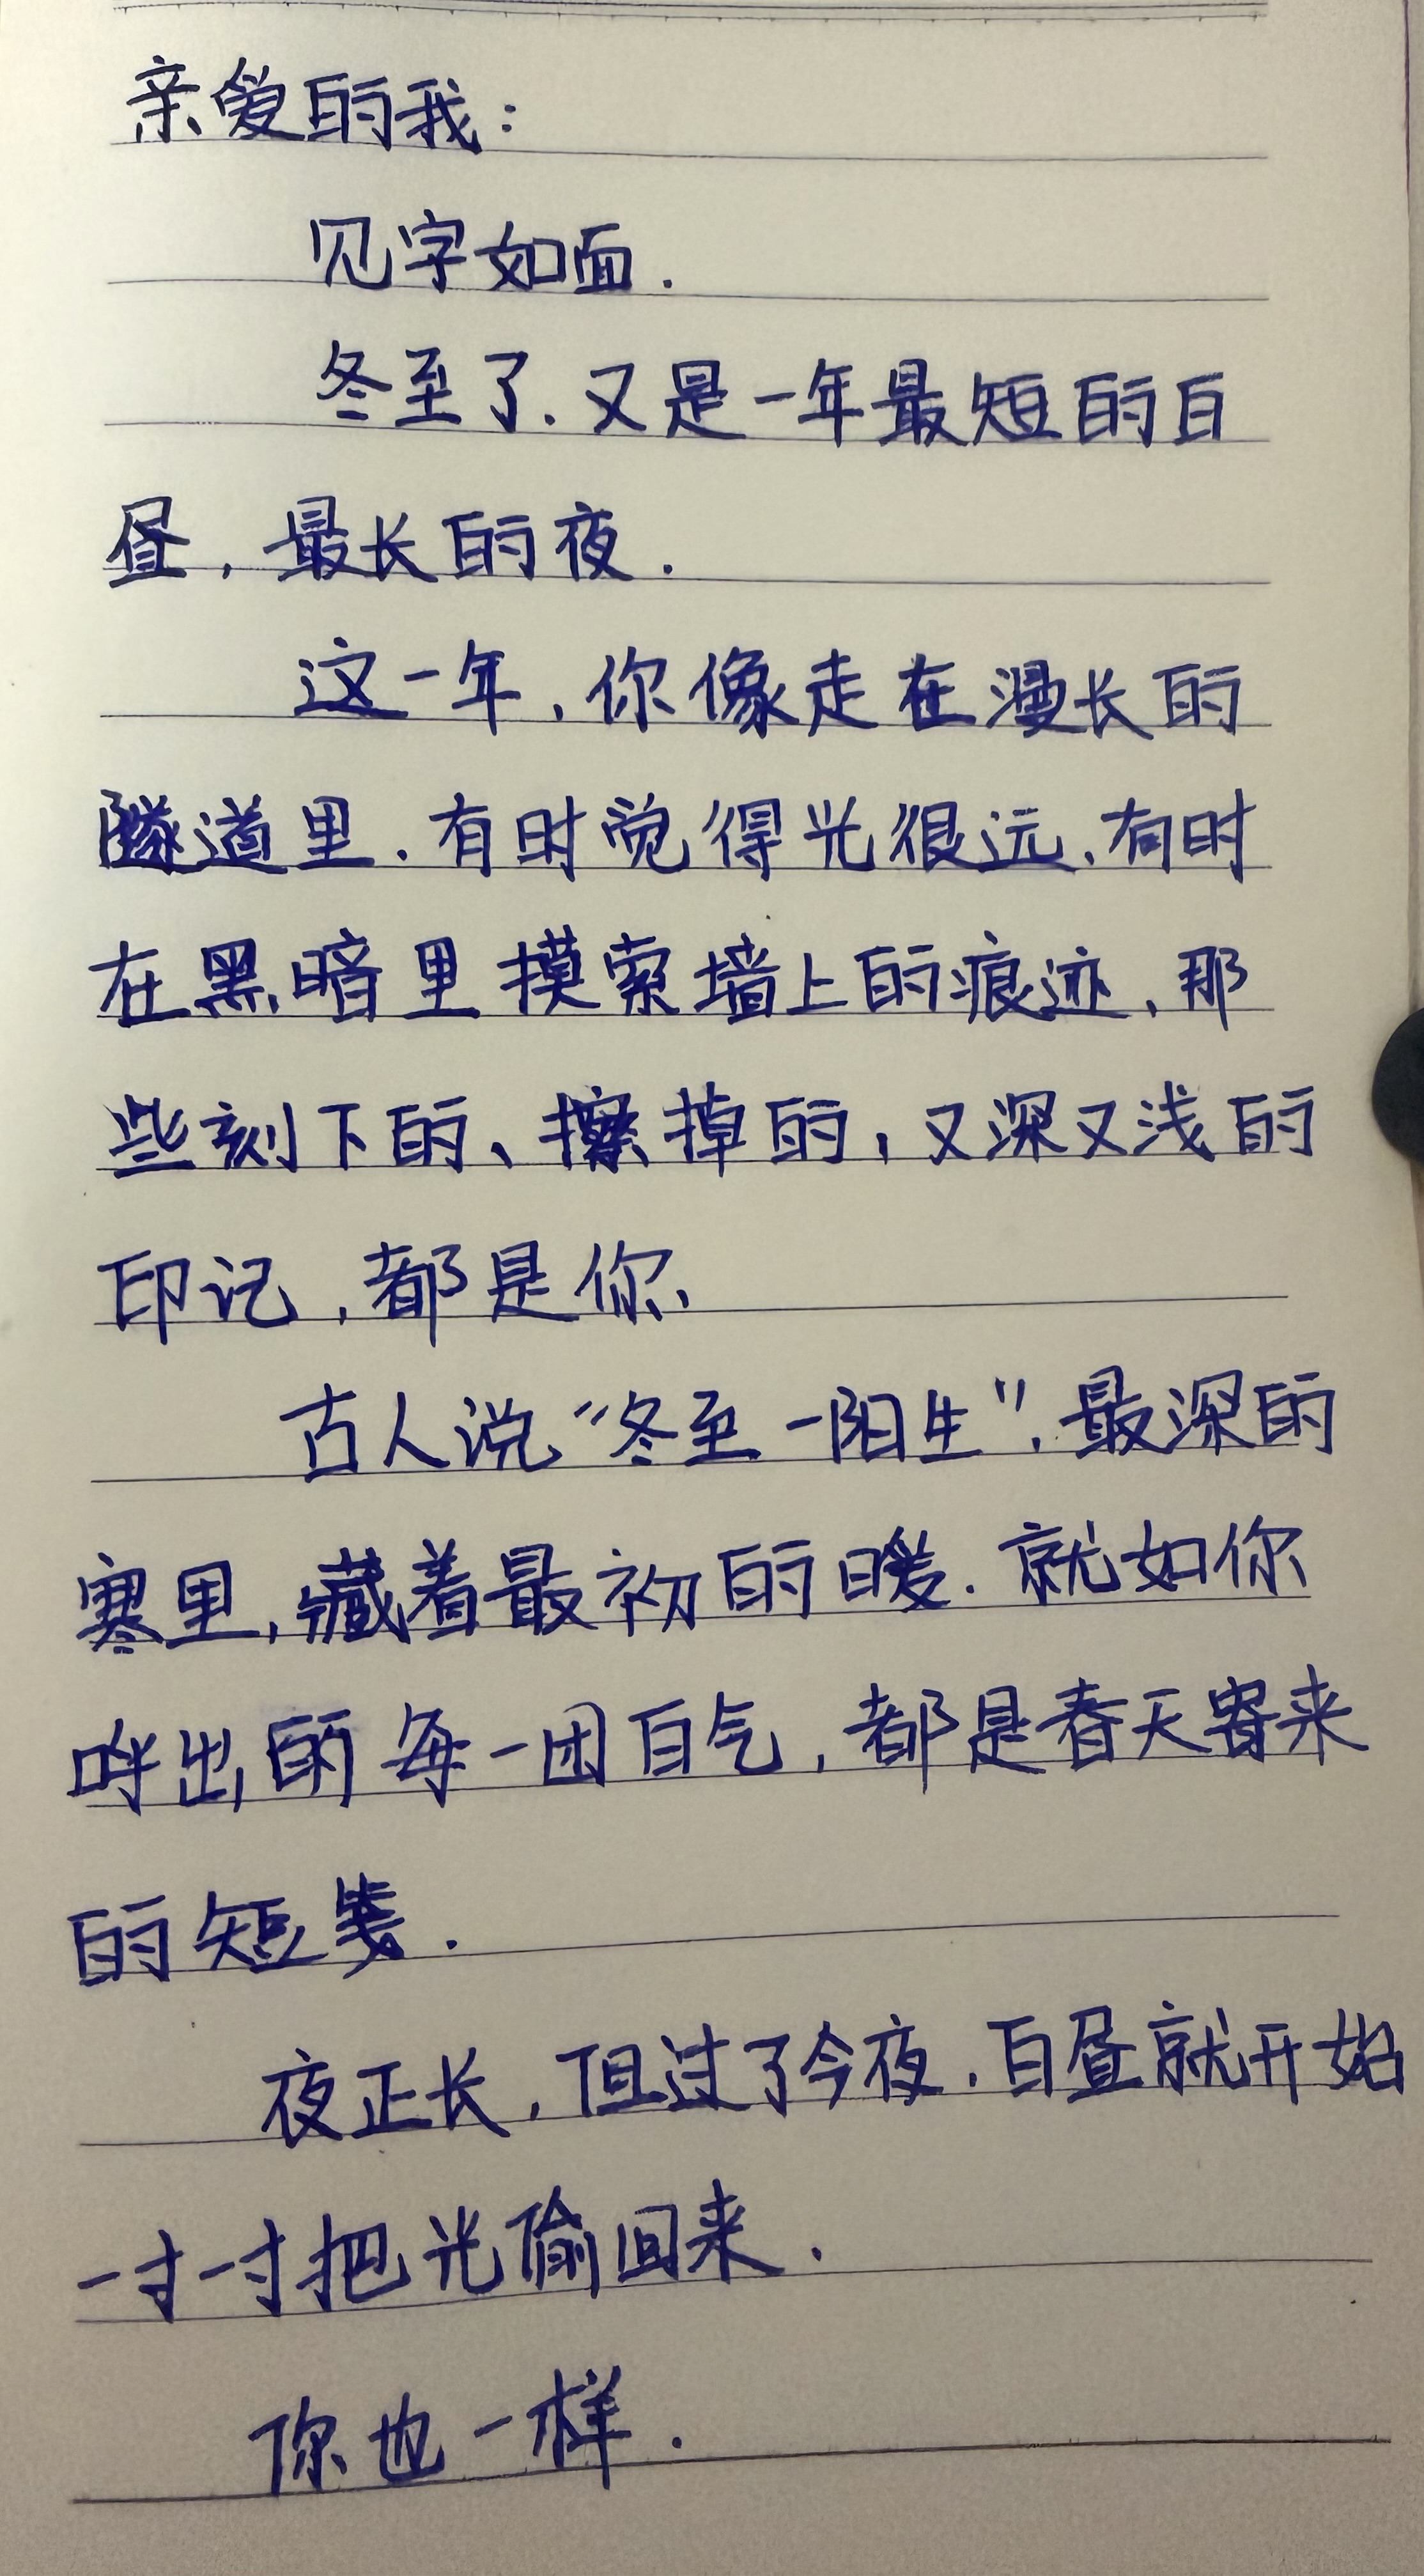 亲爱的我：
见字如面.
冬至了.又是一年最短的白
昼,最长的夜.
这一年,你像走在漫长的
隧道里.有时觉得光很远、有时
在黑暗里摸索墙上的痕迹、那
些刻下的、擦掉的,又深又浅的
印记,都是你、
古人说“冬至一阳生”.最深的
寒里,藏着最初的暖.就如你
呼出的每一团白气,都是春天寄来
的短笺.
夜正长,但过了今夜.白昼就开始
一寸一寸把光偷回来.
你也一样.